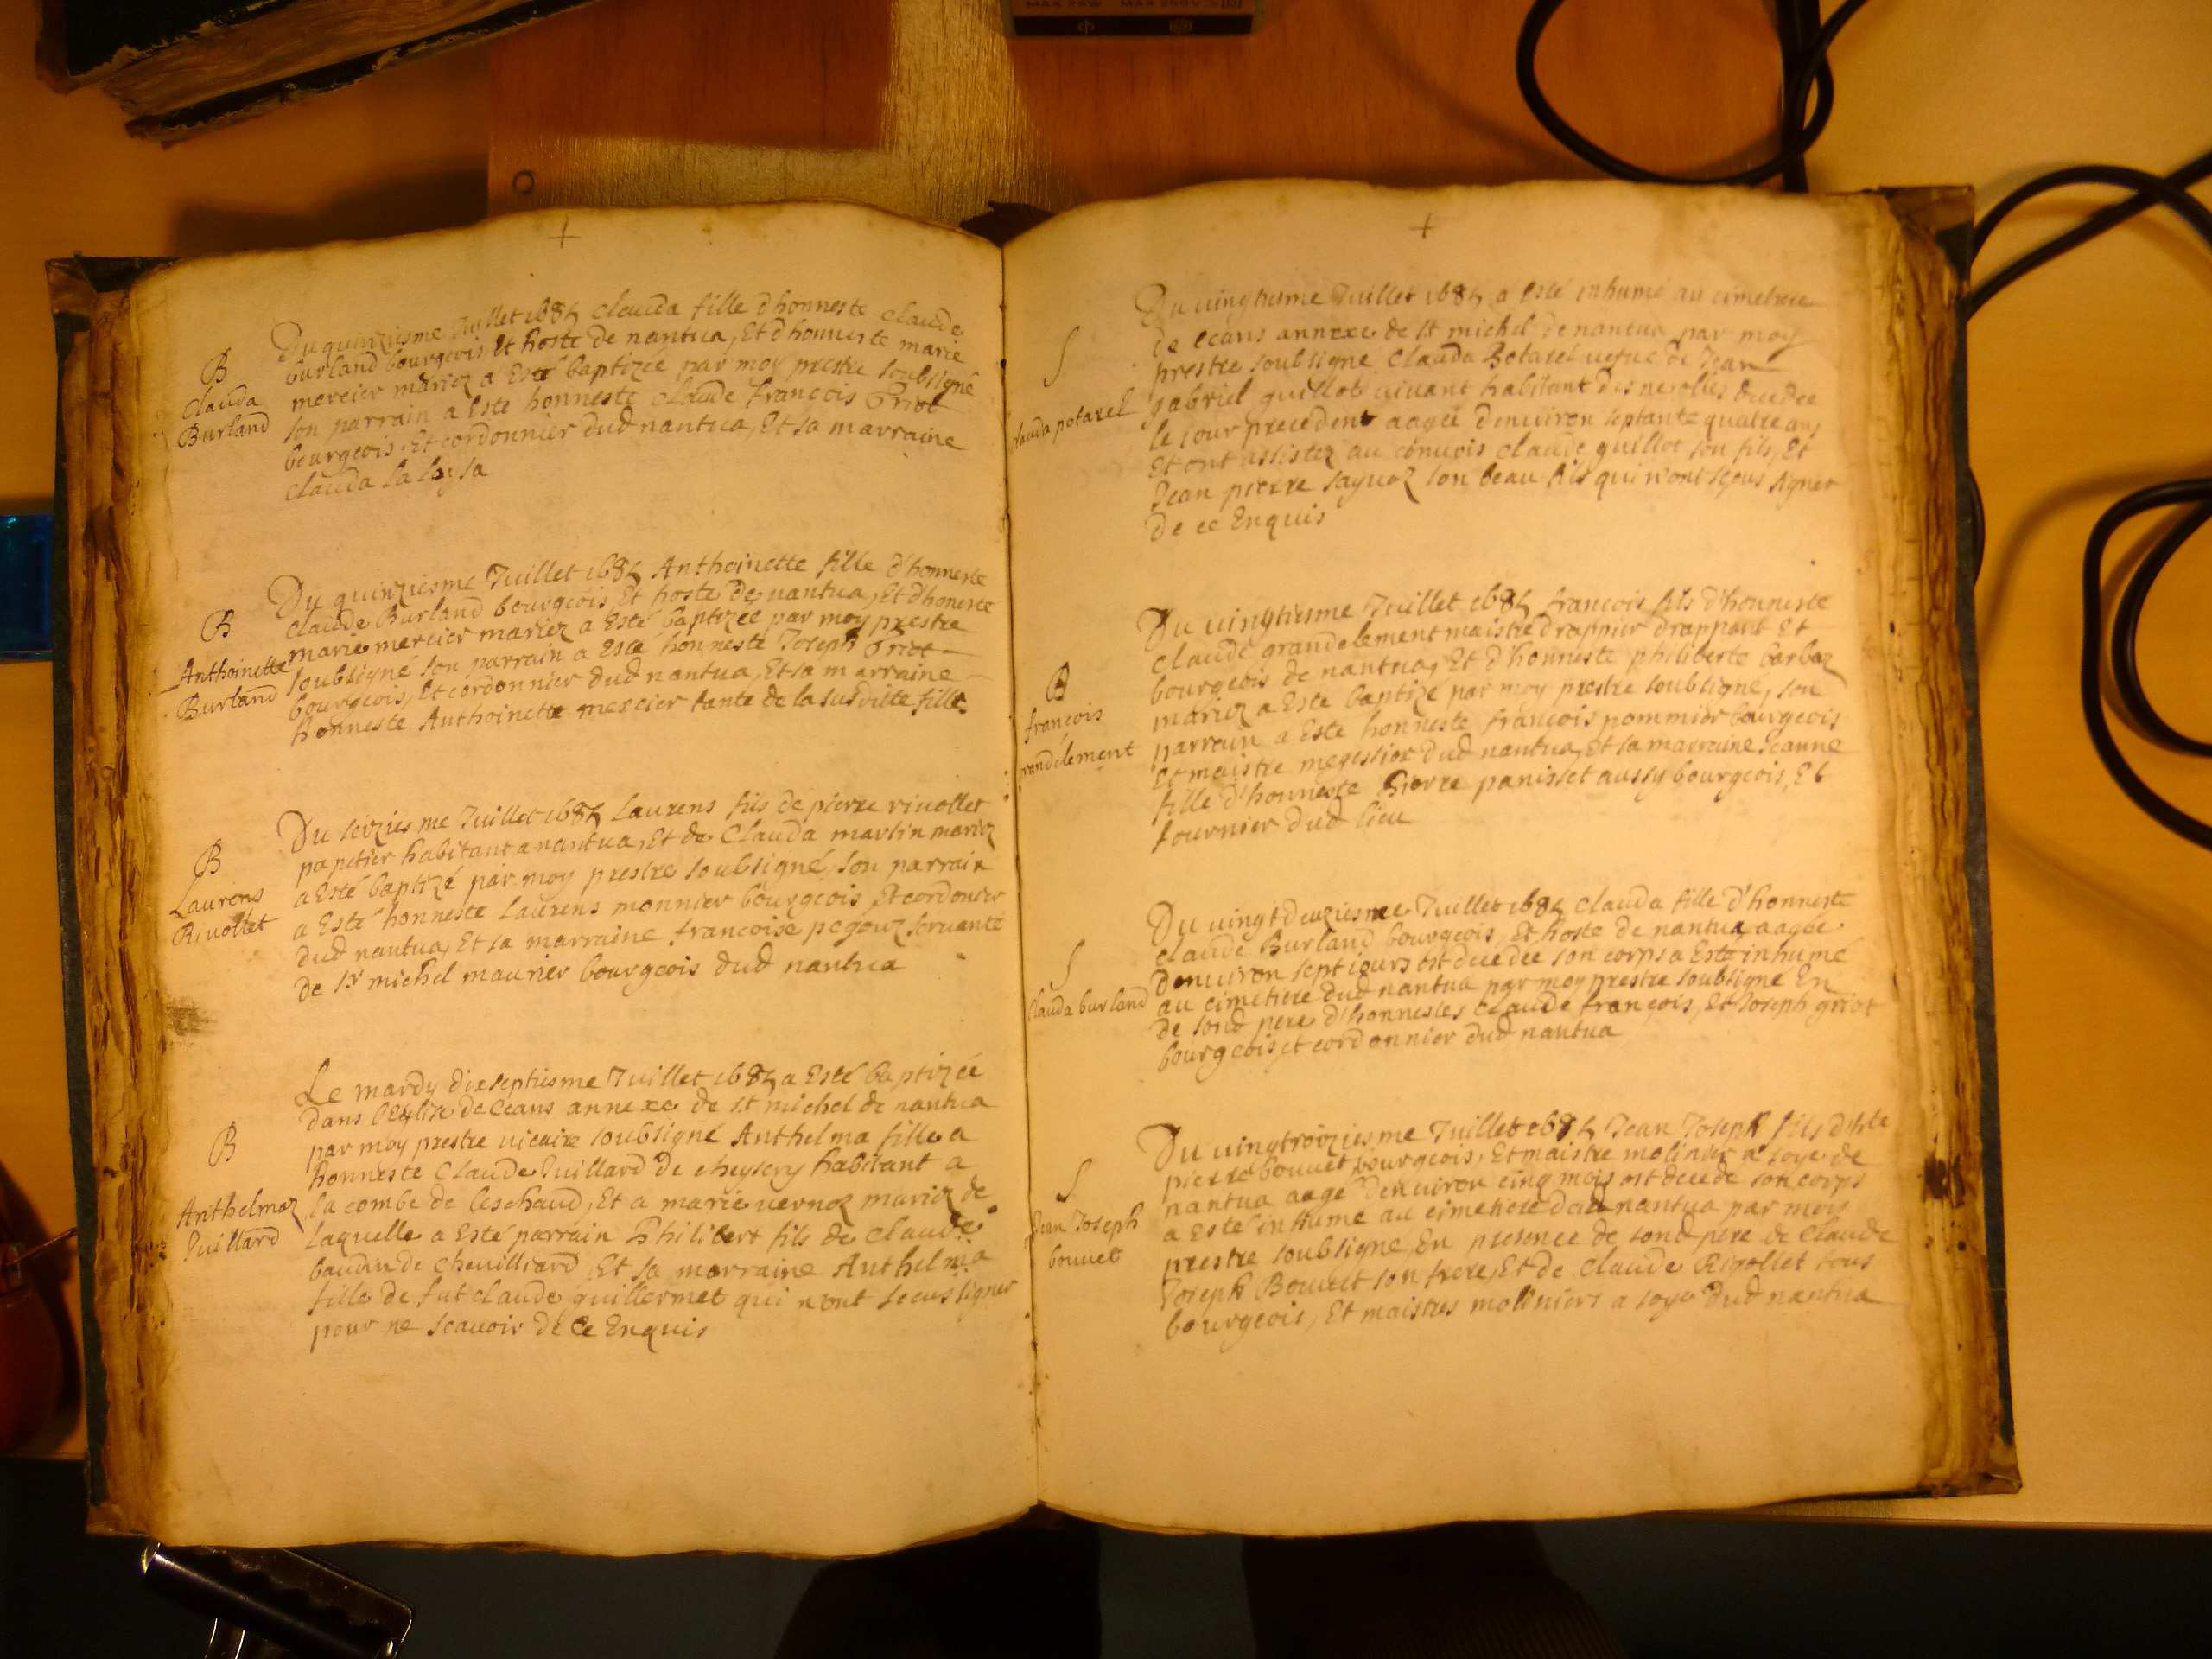 +
B
Clauda
Burland
Du quinziesme Juillet 1685 clauda fille d'honneste claude
burland bourgeois Et hoste de nantua, Et d'honneste marie
mercier mariez a Esté baptizée par moy prestre soubsigné
son parrain a Este honneste Claude francois Griot
bourgeois, Et cordonnier dud nantua, Et sa marraine
clauda
B
Anthoinette
Burland
Du quinziesme Juillet 1685 Anthoinette fille d'honneste
claude Burland bourgeois, Et hoste de nantua, Et d'honeste
marie mercier mariez a Esté baptizée par moy prestre
soubsigné son parrain a Esté honneste Joseph Griot
bourgeois, Et cordonnier dud nantua, Et sa marraine
honneste Anthoinette mercier tante de la susditte fille
B
Laurens
Rivollet
Du seiziesme Juillet 1685 Laurens fils de pierre rivollet
papetier habitant a nantua, Et de Clauda martin mariez
a Esté baptizé par moy prestre soubsigné, son parrain
a Esté honneste Laurens monnier bourgeois Et cordonier
dud nantua, Et sa marraine francoise pegouz servante
de sr michel maurier bourgeois dud nantua
B
Anthelmaz
Juillard
Le mardy dixseptiesme Juillet 1685 a Esté baptizée
dans l'Eglize de Ceans annexe de st michel de nantua
par moy prestre vicaire soubsigné Anthelma fille a
honneste Claude Juillard de cheysery habitant a
la combe de leschaud, Et a marie vernoz mariez de
laquelle a Esté parrain Philibert fils de Claude
baudin de chevilliard, Et sa marraine Anthelma
fille de fut claude guillermet qui n'ont sceus signer
pour ne scavoir de Ce Enquis
+
S
lauda potarel
Du vingtiesme Juillet 1685 a Esté inhumé au cimetiere
de ceans annexe de st michel de nantua par moy
prestre soubsigné Clauda Botarel vefue de Jean
gabriel guillot vivant habitant des nerolles decedee
le jour precedent aagée d'environ septante quatre ans
Et ont assistez au convois claude guillot son fils, Et
Jean pierre sayvez son beau fils qui n'ont sceus signer
de ce Enquis
B
francois
randclement
Du vingtiesme Juillet 1685 francois fils d'honneste
Claude grandclement maistre drappier drappant Et
bourgeois de nantua, Et d'honneste philiberte barbaz
mariez a Esté baptizé par moy prestre soubsigné, son
parrain a Esté honneste francois pommier bourgeois
Et maistre megessier dud nantua, Et sa marraine Jeanne
fille d'honneste Pierre panisset aussy bourgeois, Et
fournier dud lieu
S
Clauda burland
Du vingtdeuziesme Juillet 1685 clauda fille d'honneste
claude Burland bourgeois, Et hoste de nantua aagée
d'environ sept jours est decedee son corps a Esté inhumé
au cimetiere dud nantua par moy prestre soubsigné En
de sond pere d'honnestes Claude francois, Et Joseph griot
bourgeois et cordonnier dud nantua
S
Jean Joseph
bouvet
Du vingtroiziesme Juillet 1685 Jean Joseph fils d'hte
pierre bouvet bourgeois, Et maistre molinier a soye de
nantua aagé d'environ cinq mois est decedé son corps
a Esté inhumé au cimetiere dud nantua par moy
prestre soubsigné, En presence de sond pere de Claude
Joseph Bouvet son frere, Et de Claude Rivollet tous
bourgeois, Et maistres moliniers a soye dud nantua